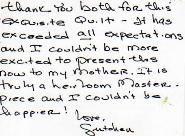 thank you both for this
exquisite Quilt - It has
exceeded all expectations
and I couldn't be more
excited to present this
now to my mother. It is
truly a heirloom Master-
piece and I couldn't be
happier! Love,
Gretchen